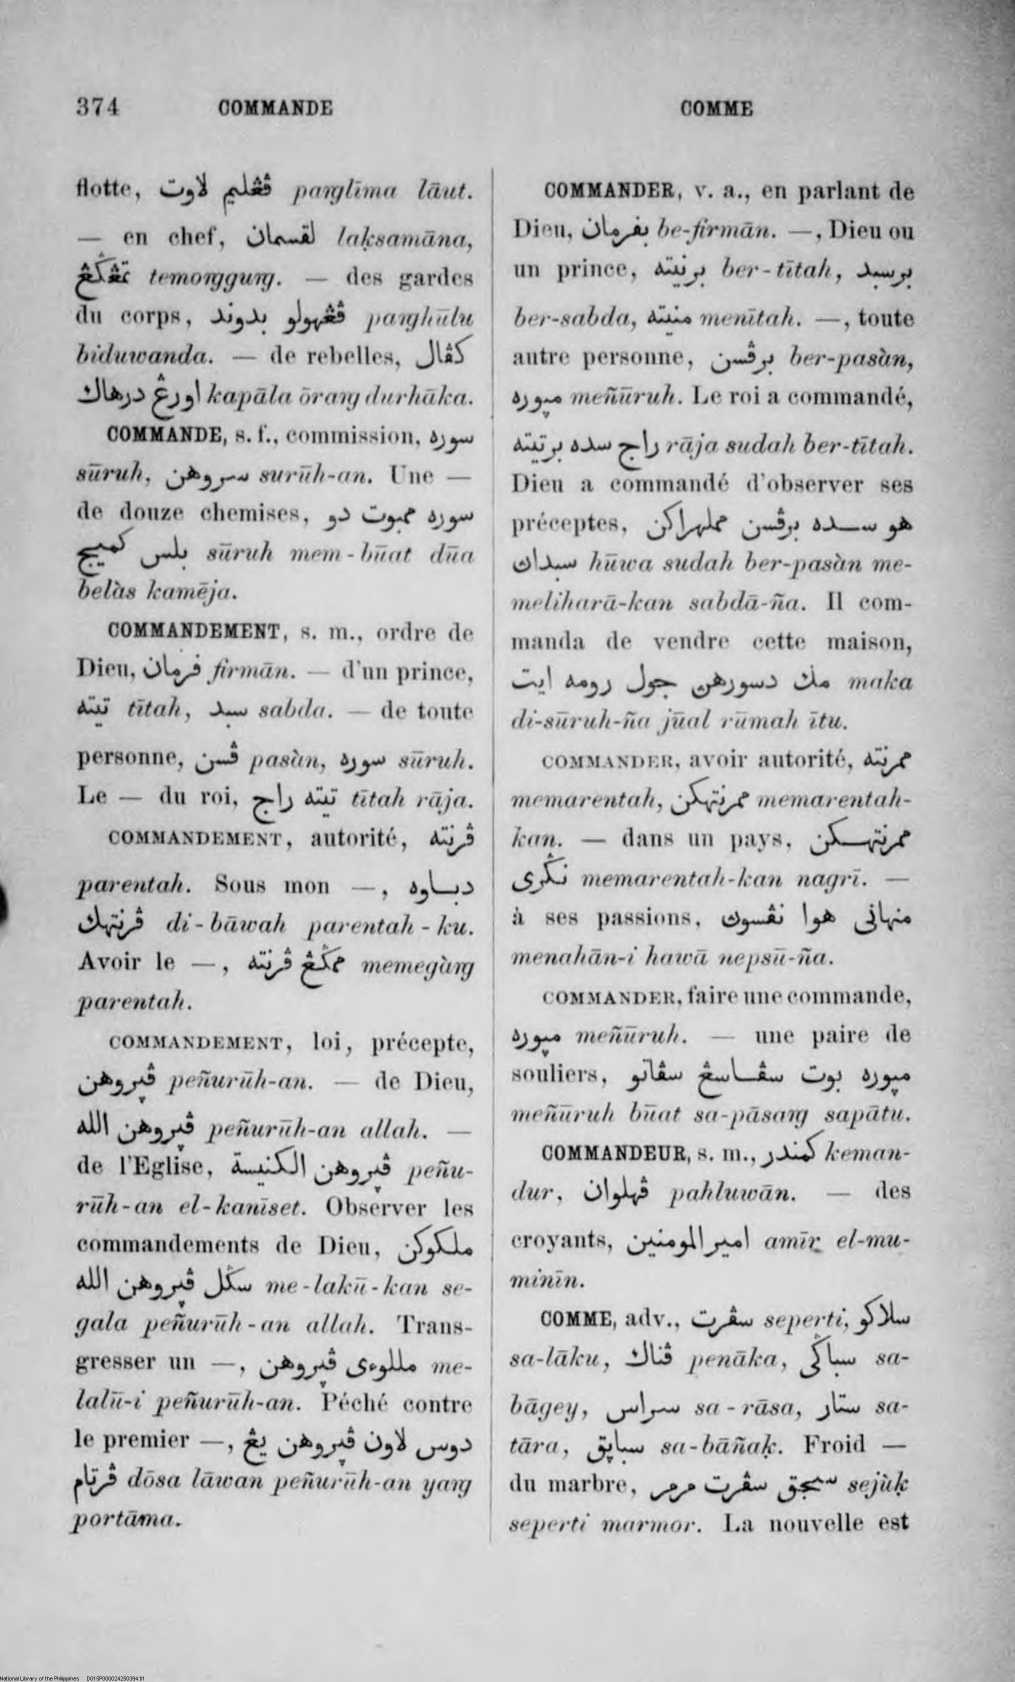 374 COMMANDE COMME
flotte, ڤڠليم لاوت paŋglīma lāut.
— en chef, لقسمان laḳsamāna,
تمڠݢڠ temoŋgguŋ. — des gardes
du corps, ڤڠهولو بدوند paŋghūlu
biduwanda. — de rebelles, كڤال
اورڠ درهاك kapāla ōraŋ durhāka.
COMMANDE, s. f., commission, سوره
sūruh, سروهن surūh-an. Une —
de douze chemises, سوره ممبوت دو
بلس كميج sūruh mem-būat dūa
belàs kamēja.
COMMANDEMENT, s. m., ordre de
Dieu, فرمان firmān. — d'un prince,
تيته tītah, سبد sabda. — de toute
personne, ڤسن pasàn, سوره sūruh.
Le — du roi, تيته راج tītah rāja.
COMMANDEMENT, autorité, ڤرنته
parentah. Sous mon —, دباوه
ڤرنتهك di-bāwah parentah-ku.
Avoir le —, ممݢڠ ڤرنته memegàŋ
parentah.
COMMANDEMENT, loi, précepte,
ڤڽروهن peñurūh-an. — de Dieu,
ڤڽروهن الله peñurūh-an allah. —
de l'Eglise, ڤڽروهن الكنيسة peñu-
rūh-an el-kanīset. Observer les
commandements de Dieu, ملكوكن
سݢل ڤڽروهن الله me-lakū-kan se-
gala peñurūh-an allah. Trans-
gresser un —, مللوءى ڤڽروهن me-
lalū-i peñurūh-an. Péché contre
le premier —, دوس لاون ڤڽروهن يڠ
ڤرتام dōsa lāwan peñurūh-an yaŋ
portāma.
COMMANDER, v. a., en parlant de
Dieu, بفرمان be-firmān. —, Dieu ou
un prince, برتيته ber-tītah, برسبد
ber-sabda, منيته menītah. —, toute
autre personne, برڤسن ber-pasàn,
مڽوره meñūruh. Le roi a commandé,
راج سده برتيته rāja sudah ber-tītah.
Dieu a commandé d'observer ses
préceptes, هو سده برڤسن مملهراكن
سبداڽ hūwa sudah ber-pasàn me-
meliharā-kan sabdā-ña. Il com-
manda de vendre cette maison,
مك دسورهڽ جول رومه ايت maka
di-sūruh-ña jūal rūmah ītu.
COMMANDER, avoir autorité, ممرنته
memarentah, ممرنتهكن memarentah-
kan. — dans un pays, ممرنتهكن
نݢرى memarentah-kan nagrī. —
à ses passions, منهانى هوا نڤسوڽ
menahān-i hawā nepsū-ña.
COMMANDER, faire une commande,
مڽوره meñūruh. — une paire de
souliers, مڽوره بوت سڤاسڠ سڤاتو
meñūruh būat sa-pāsaŋ sapātu.
COMMANDEUR, s. m., كمندر keman-
dur, ڤهلوان pahluwān. — des
croyants, اميرالمومنين amīr el-mu-
minīn.
COMME, adv., سڤرت seperti, سلاكو
sa-lāku, ڤناك penāka, سباݢى sa-
bāgey, سراس sa-rāsa, ستار sa-
tāra, سباڽق sa-bāñaḳ. Froid —
du marbre, سيجق سڤرت مرمر sejùḳ
seperti marmor. La nouvelle est